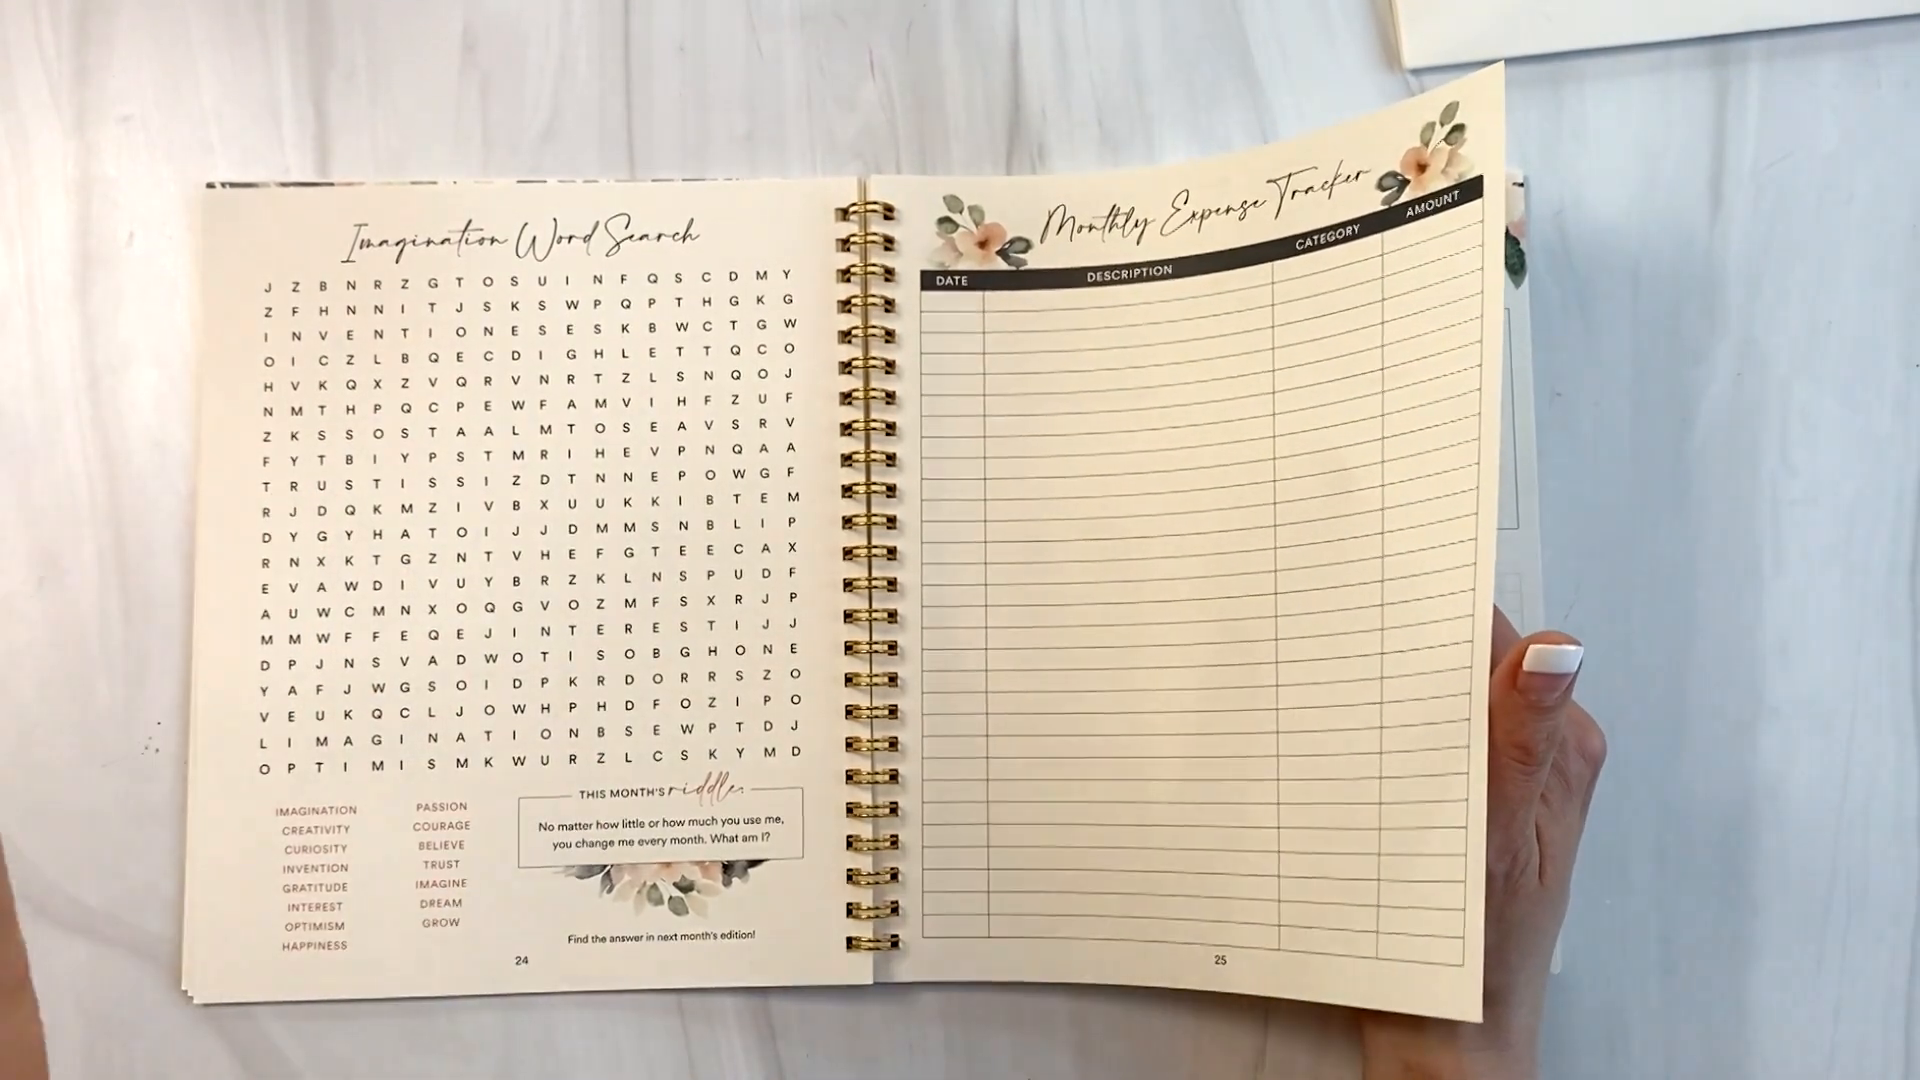 Imagination Word Search
J Z B N R Z G T O S U I N F Q S C D M Y
Z F H N N I T J S K S W P Q P T H G K G
I N V E N T I O N E S E S K B W C T G W
O I C Z L B Q E C D I G H L E T T Q C O
H V K Q X Z V Q R V N R T Z L S N Q O J
N M T H P Q C P E W F A M V I H F Z U F
Z K S S O S T A A L M T O S E A V S R V
F Y T B I Y P S T M R I H E V P N Q A A
T R U S T I S S I Z D T N N E P O W G F
R J D Q K M Z I V B X U U K K I B T E M
D Y G Y H A T O I J J D M M S N B L I P
R N X K T G Z N T V H E F G T E E C A X
E V A W D I V U Y B R Z K L N S P U D F
A U W C M N X O Q G V O Z M F S X R J P
M M W F F E Q E J I N T E R E S T I J J
D P J N S V A D W O T I S O B G H O N E
Y A F J W G S O I D P K R D O R R S Z O
V E U K Q C L J O W H P H D F O Z I P O
L I M A G I N A T I O N B S E W P T D J
O P T I M I S M K W U R Z L C S K Y M D
IMAGINATION
CREATIVITY
CURIOSITY
INVENTION
GRATITUDE
INTEREST
OPTIMISM
HAPPINESS
PASSION
COURAGE
BELIEVE
TRUST
IMAGINE
DREAM
GROW
THIS MONTH'S riddle:
No matter how little or how much you use me,
you change me every month. What am I?
Find the answer in next month's edition!
24
Monthly Expense Tracker
DATE DESCRIPTION CATEGORY AMOUNT
25